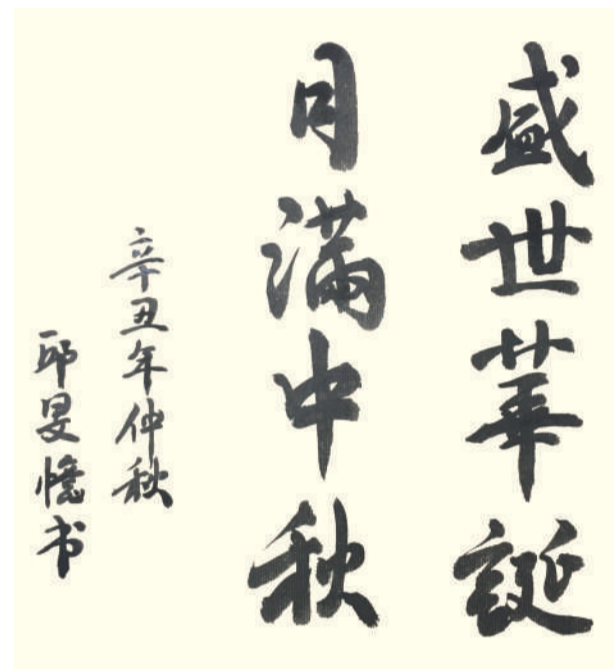 盛世華誕
月滿中秋
辛丑年仲秋
邱旻憶书